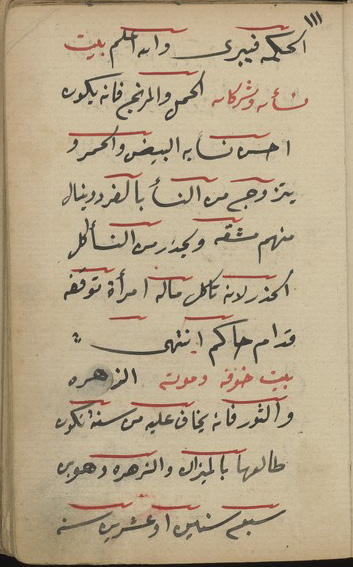 ١١١
الحكمه فيبرى والله اعلم بيت
نسائه وشركائه الحمل والمريخ فانه يكون
احسن نسايه البيض والحمر و
يتزوج من النسأ بالفرد وينال
منهم مشقه ويحذر من النسأ كل
الحذر لانه تاكل ماله امرأة توقفه
قدام حاكم انتهى
بيت خوفه وموته الزهره
والثور فانه يخاف عليه من سنة تكون
طالعها بالميزان والزهره وهو بن
سبع سنين او عشرين سنه